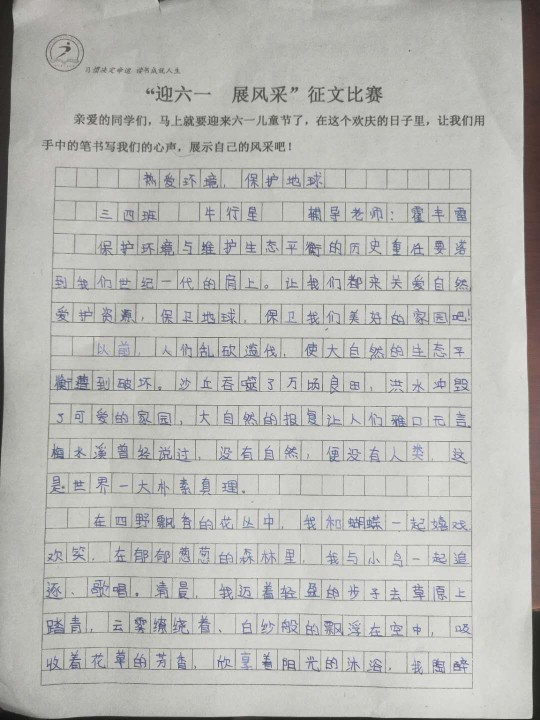 习惯决定命运 读书成就人生
“迎六一 展风采”征文比赛
亲爱的同学们，马上就要迎来六一儿童节了，在这个欢庆的日子里，让我们用
手中的笔书写我们的心声，展示自己的风采吧！
热爱环境，保护地球
三四班 牛行星 辅导老师：霍丰雷
保护环境与维护生态平衡的历史重任要落
到我们世纪一代的肩上。让我们都来关爱自然
爱护资源，保卫地球，保卫我们美好的家园吧！
以前，人们乱砍滥伐，使大自然的生态平
衡遭到破坏。沙丘吞噬了万顷良田，洪水冲毁
了可爱的家园，大自然的报复让人们雅口无言
梅水溪曾经说过，没有自然，便没有人类，这
是世界一大朴素真理。
在四野飘香的花丛中，我和蝴蝶一起嬉戏
欢笑，在郁郁葱葱的森林里，我与小鸟一起追
逐、歌唱。清晨，我迈着轻盈的步子去草原上
踏青，云雾缭绕着、白纱般的飘浮在空中，吸
收着花草的芳香，欣享着阳光的沐浴，我陶醉